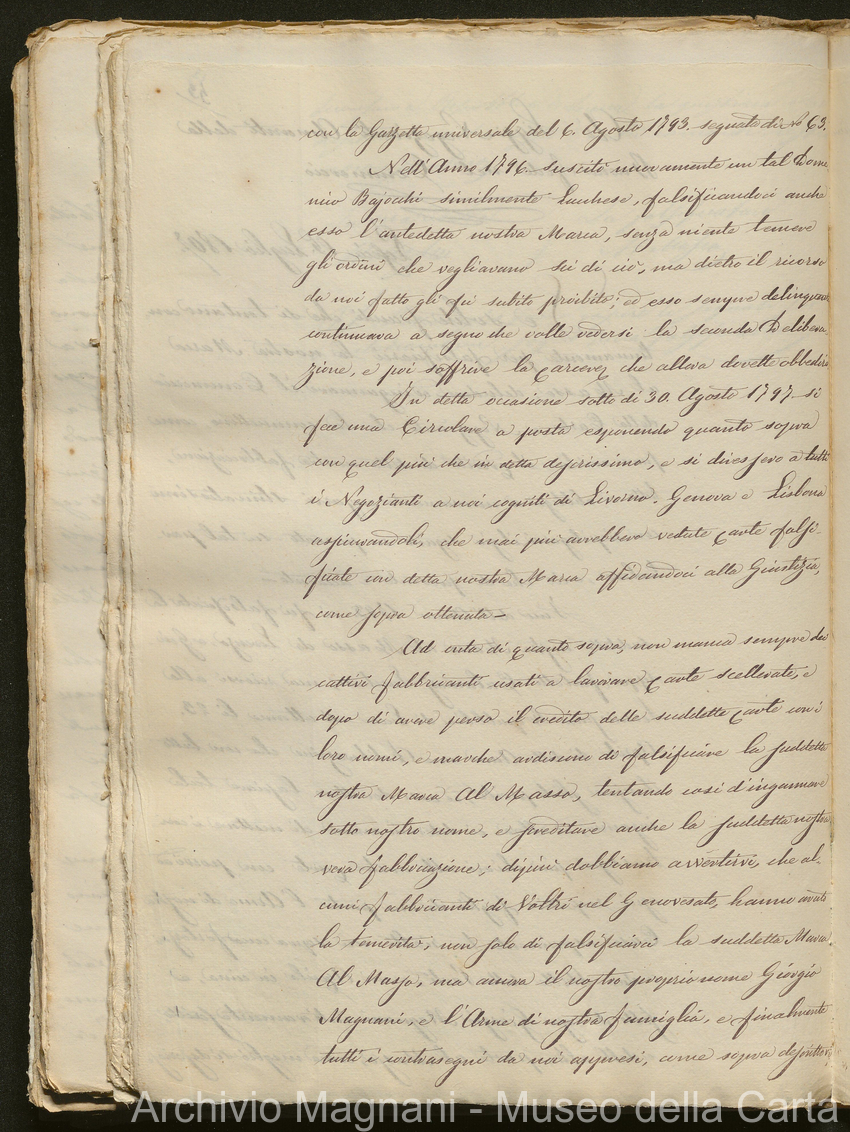 con la Gazzetta universale del 6. Agosto 1793. segnata di No 63.
Nell'Anno 1796. suscitò nuovamente un tal Dome
nico Bajocchi similmente Lucchese, falsificandoci anche
esso l'antedetta nostra Marca, senza niente temere
gli ordini che vegliavano sù di ciò, ma dietro il ricorso
da noi fatto gli fù subito proibito; ed esso sempre delinquere
continuava a segno che volle vedersi la seconda Delibera
zione, e poi soffrire la carcere che allora dovette obbedire
In detta occasione sotto di 30. Agosto 1797. si
fece una Circolare a posta esponendo quanto sopra
con quel più che in detta dicessimo, e si diressero a tutti
i Negozianti a noi cogniti di Livorno, Genova e Lisbona
assicurandoli, che mai più avrebbero vedute carte falsi-
ficate con detta nostra Marca affidandoci alla Giustizia,
come sopra ottenuta —
Ad onta di quanto sopra, non manca sempre dei
cattivi fabbricanti usati a lavorare carte scellerate, e
dopo di avere perso il credito delle suddette carte con i
loro nomi, e marche ardiscono di falsificare la suddetta
nostra Marca Al Masso, tentando così d'ingannare
sotto nostro nome, e screditare anche la suddetta nostra
vera fabbricazione; dipiù dobbiamo avvertirvi, che al-
cuni fabbricanti di Voltri nel Genovesato, hanno avuto
la temerità, non solo di falsificarci la suddetta Marca
Al Masso, ma ancora il nostro proprio nome Giorgio
Magnani, e l'Arme di nostra famiglia, e finalmente
tutti i contrasegni da noi appresi, come sopra descritto,
Archivio Magnani - Museo della Carta